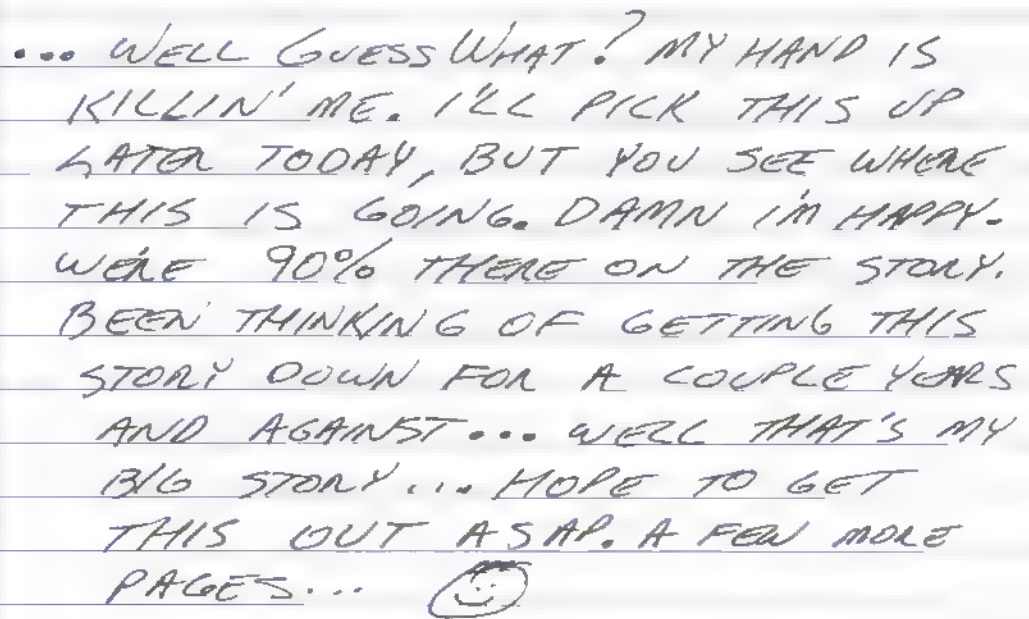 ... WELL GUESS WHAT? MY HAND IS
KILLIN' ME. I'LL PICK THIS UP
LATER TODAY, BUT YOU SEE WHERE
THIS IS GOING. DAMN I'M HAPPY.
WE'RE 90% THERE ON THE STORY.
BEEN THINKING OF GETTING THIS
STORY DOWN FOR A COUPLE YEARS
AND AGAINST... WELL THAT'S MY
BIG STORY... HOPE TO GET
THIS OUT ASAP. A FEW MORE
PAGES...